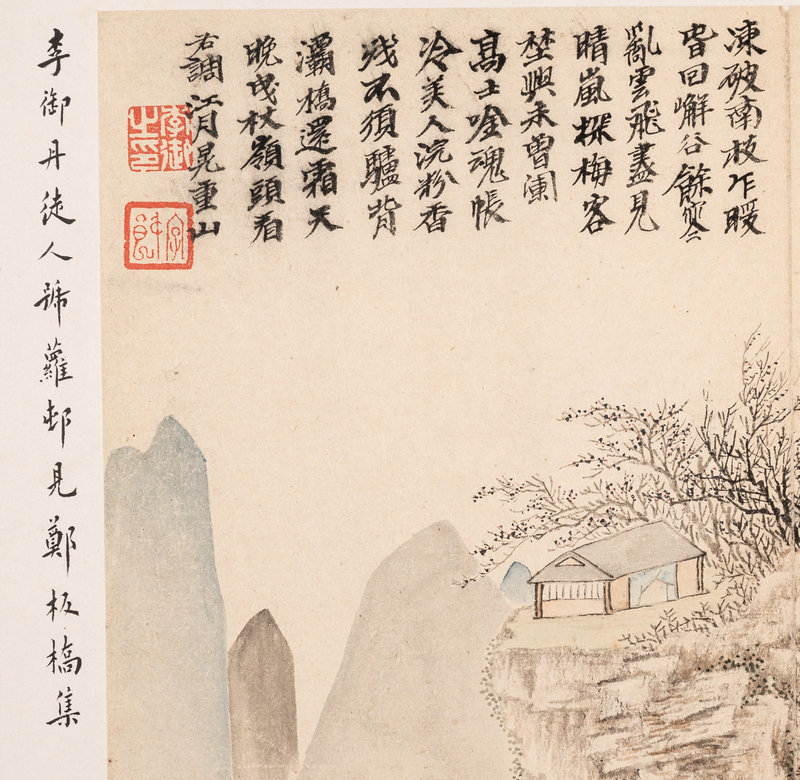 凍破南枝乍暖
回嶰谷餘寒
亂雲飛盡見
晴嵐探梅客
埜興未曾闌
高士唫魂帳
冷美人浣粉香
殘不須驢背
灞橋還霜天
晚曳杖嶺頭看
右調江月晃重山
李御之印
李御丹徒人號蘿邨見鄭板橋集